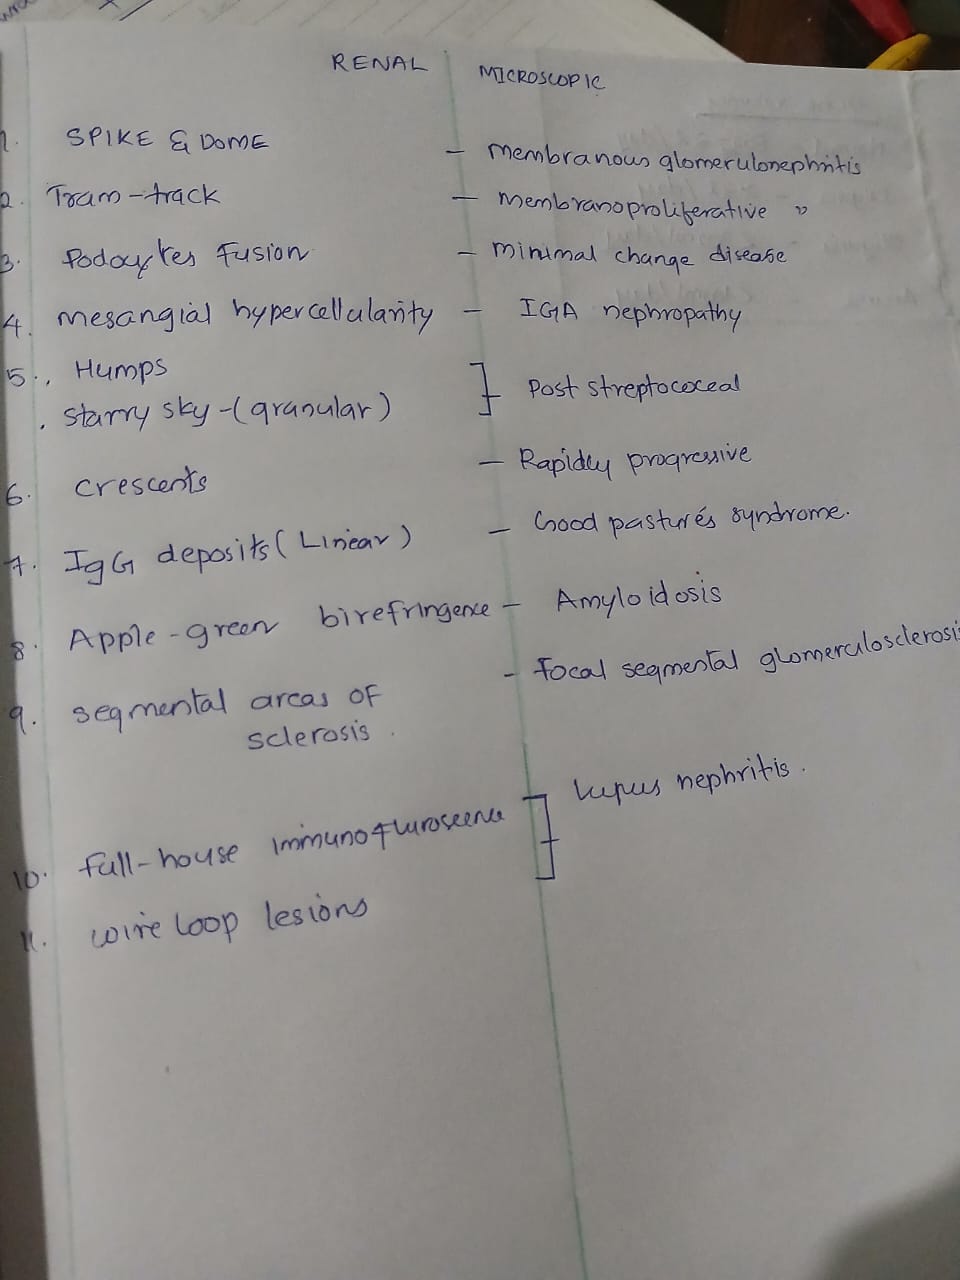 RENAL MICROSCOPIC
1. SPIKE & DOME - membranous glomerulonephritis
2. Tram-track - membranoproliferative "
3. Podocytes Fusion - minimal change disease
4. mesangial hypercellularity - IGA nephropathy
5. Humps
starry sky-(granular) ] Post streptococcal
6. crescents - Rapidly progressive
7. IgG deposits (Linear) - Good pasture's syndrome.
8. Apple-green birefringence - Amyloidosis
9. segmental areas of - Focal segmental glomerulosclerosis
sclerosis.
10. Full-house immunofluroscence ] Lupus nephritis.
11. wire loop lesions